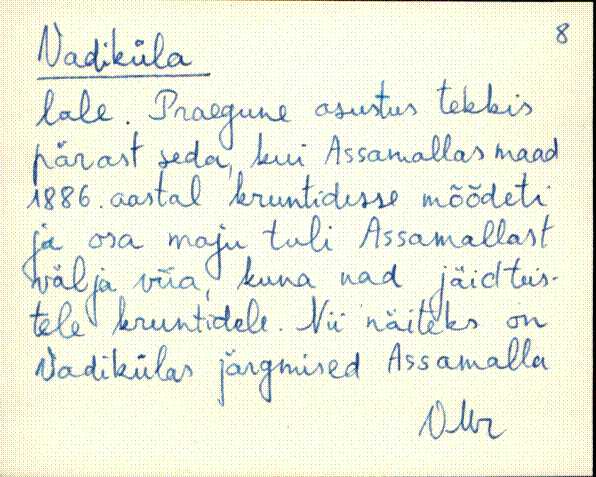 8
Vadiküla
lale. Praegune asustus tekkis
pärast seda, kui Assamallas maad
1886. aastal kruntidesse mõõdeti
ja osa maju tuli Assamallast
välja viia, kuna nad jäid teis-
tele kruntidele. Nii näiteks on
Vadikülas järgmised Assamalla